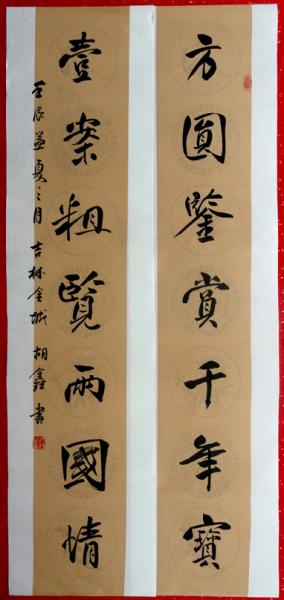 方圓鑒賞千年寶
壹案粗覽兩國情
壬辰孟夏之月 吉林金城 胡鑫 書